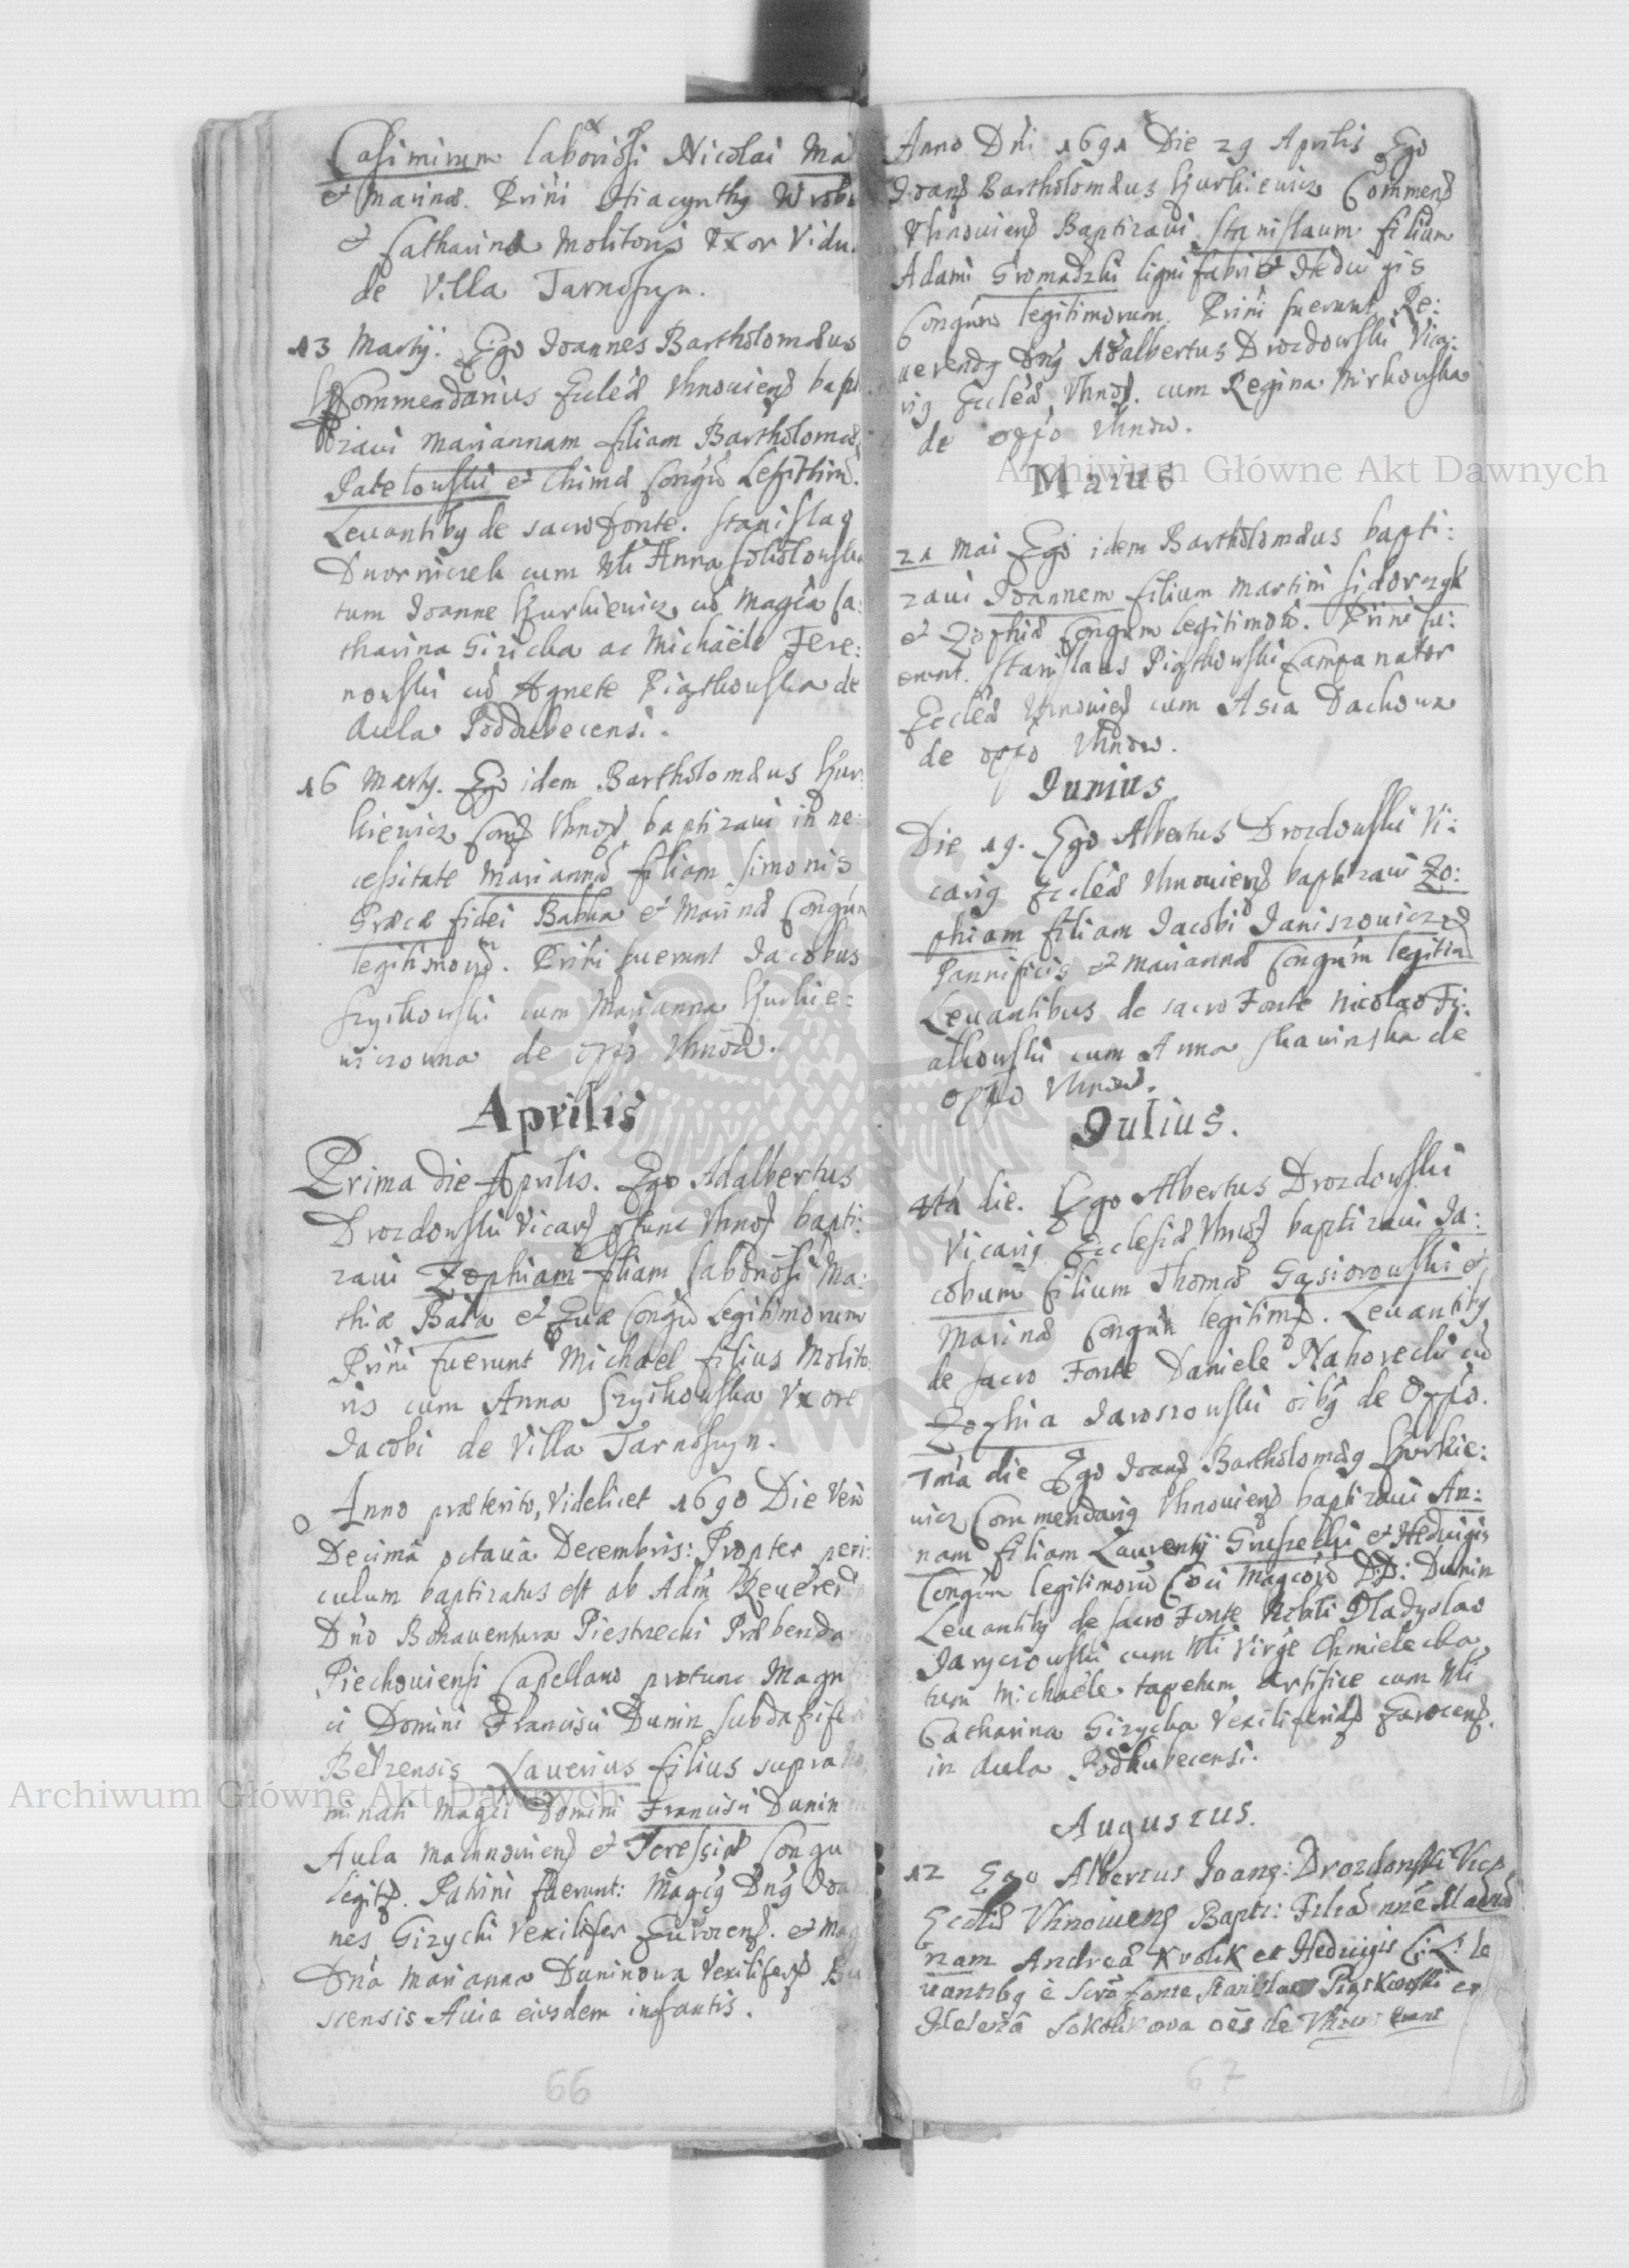 Casimirum laboriosi Nicolai Ma
et Marinæ. Prini Hiacynthg Wrobe
et Catharina Molitoris Uxor Vidu.
de Villa Tarnoszyn.
13 Martij. Ego Joannes Bartholomæus
Commendarius Eccleæ Uhnouiens bapt
izaui Mariannam filiam Bartholomæi
Patelowski et Chimæ Congũ Legithim.
Leuantibg de sacro fonte. Stanislag
Dworniczek cum Nli Anna Sokolowska
tum Joanne Kurkiewicz cũ Magca Ca:
tharina Gizicka ac Michaële Fere:
nowski cũ Agnete Piątkowska de
Aula Poddubecensi.
16 Martij. Ego idem Bartholomæus Kur:
kiewicz Coms Uhnos baptizaui in ne
cessitate Mariannã filiam Simonis
Græcæ fidei Babka et Marinæ Congũn
legitimorũ. Prini fuerunt Jacobus
Szyikowski cum Marianna Kurkie:
wiczowna de oppo Uhnow.
Aprilis
Prima die Aprilis. Ego Adalbertus
Drozdowski Vicars ptunc Uhnos bapti:
zaui Zophiam filiam laboriosi Ma:
thiæ Bała et Euæ Congũ Legitimorum
Prini fuerunt Michael filius Molito:
ris cum Anna Szyikowska Uxore
Jacobi de Villa Tarnoszyn.
Anno præterito, Videlicet 1690 Die Vero
Decima octaua Decembris: Propter peri:
culum baptizatus est ab Adm Reuere
Dno Bonauentura Piestrzecki Præbenda
Piechouiensi Capellano protunc Magn
ci Domini Francisci Dunin Subdapife
Belzensis Xauerius filius supra no
minati Magci Domini Francisci Dunin
Aula Machnouiens et Teressiæ Congu
legits. Patrini fuerunt: Magcg Dng Joa
nes Gizycki Vexilifer et Mag
Dna Marianna Duninowa Vexilifers Bu
scensis Auia eiusdem infantis.
66
Anno Dni 1691 Die 29 Aprilis Ego
Joans Bartholomæus Kurkiewicz Commens
Uhnouiens Baptizaui Stanislaum filium
Adami Gromadzki lignifabri et Hedwigis
Congũno legitimorum. Prini fuerunt Re:
uerendg Dng Adalbertus Drozdowski Vica:
rig Eccleæ Uhnos. cum Regina Mirkowska
de oppo Uhnow.
Maius
21 Mai Ego idem Bartholomæus bapti:
zaui Joannem filium Martini Sidorczyk
et Zophiæ Congum legitimorũ. Prini fu:
erunt. Stanislaus Piątkowski Campanator
Eccleæ Uhnouies cum Asia Dachowa
de oppo Uhnow.
Junius
Die 19. Ego Albertus Drozdowski Vi:
carig Eccleæ Uhnouiens baptizaui Zo:
phiam filiam Jacobi Janiszowicz
Pannificis et Mariannæ Congũm legitim
Leuantibus de sacro Fonte Nicolao Fi:
alkowski cum Anna Skawinska de
oppo Uhnow.
Julius.
4ta die. Ego Albertus Drozdowski
Vicarig Ecclesiæ Uhnos baptizaui Ja:
cobum filium Thomæ Gąsiorowski et
Marinæ Congũn legitims. Leuantibg
de sacro Fonte Daniele Nahorecki cũ
Zophia Jaroszowski oibg de Oppo.
7ma die Ego Joans Bartholomæg Kurkie:
wicz Commendarig Uhnouiens baptizaui An:
nam filiam Laurentij Gruszecki et Heduigis
Congũn legitimorũ Coci Magcorũ D.D: Dunin
Leuantibg de sacro Fonte Nobili Wladyslao
Jaryczowski cum Nli Virge Chmielecka,
tum Michaële tapetum Artifice cum Nli
Catharina Gizycka Vexiliferidæ
in Aula Poddubecensi.
Augustus.
12 Ego Albertus Joang: Drozdowski Vics
Eccliæ Uhnouiens Bapti: Filiã nne Magda
nam Andreæ Krolik et Heduigis C: L: le
uantibg è sacro fonte Stanislao Piątkowski et
Helena Sokolikowa oẽs de Uhnow erant
67
Archiwum Główne Akt Dawnych
Archiwum Główne Akt Dawnych